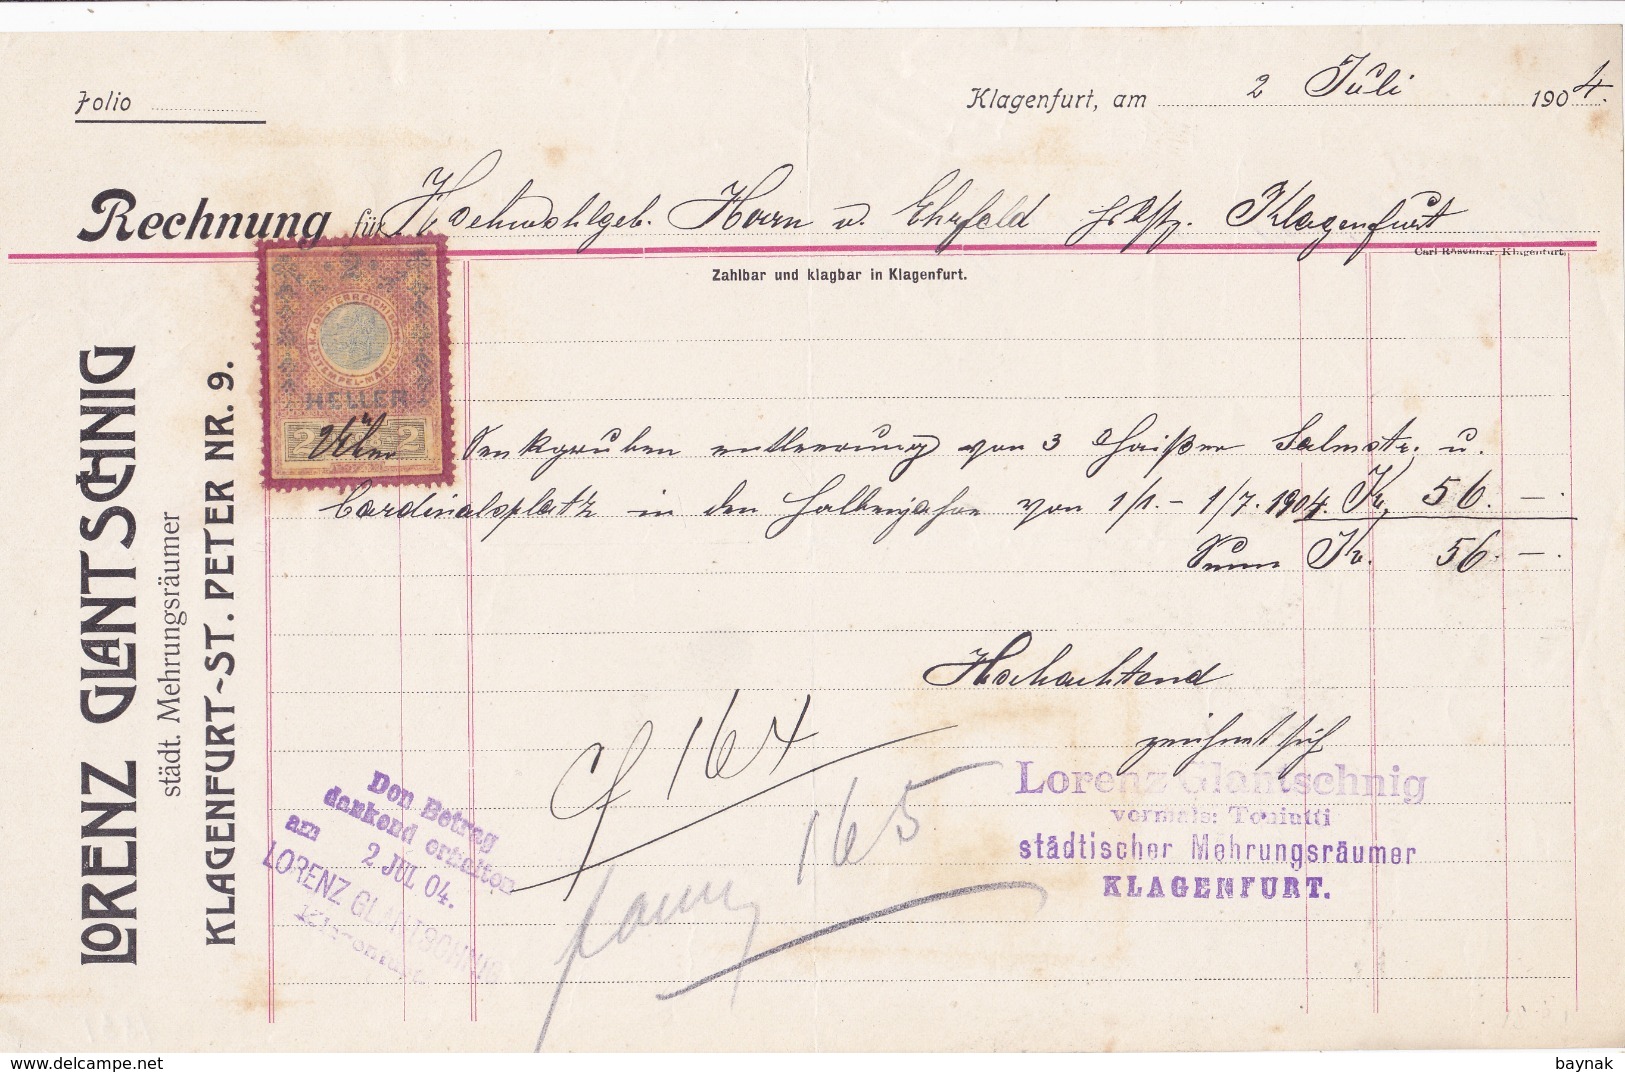 Folio
Klagenfurt, am 2 Juli 1904.
Rechnung für Hochwohlgeb. Herrn v. Ehrfeld Klagenfurt
Carl Röschnar, Klagenfurt.
Zahlbar und klagbar in Klagenfurt.
LORENZ GLANTSCHNIG
städt. Mehrungsräumer
KLAGENFURT-ST. PETER NR. 9.
2
K.K. OESTERREICHISCHE STEMPEL-MARKE
HELLER
2 2
Senkgruben entleerung von 3 Häißer Salmstr. u.
Cardinalsplatz in den Halbenjahre von 1/1 - 1/7. 1904. Kr. 56. -.
Summ Kr. 56. -.
Hochachtend
zeichnet sich
Lorenz Glantschnig
vormals: Toniutti
städtischer Mehrungsräumer
KLAGENFURT.
164
165
Den Betrag
dankend erhalten
am 2 JUL 04.
LORENZ GLANTSCHNIG
Klagenfurt
baynak